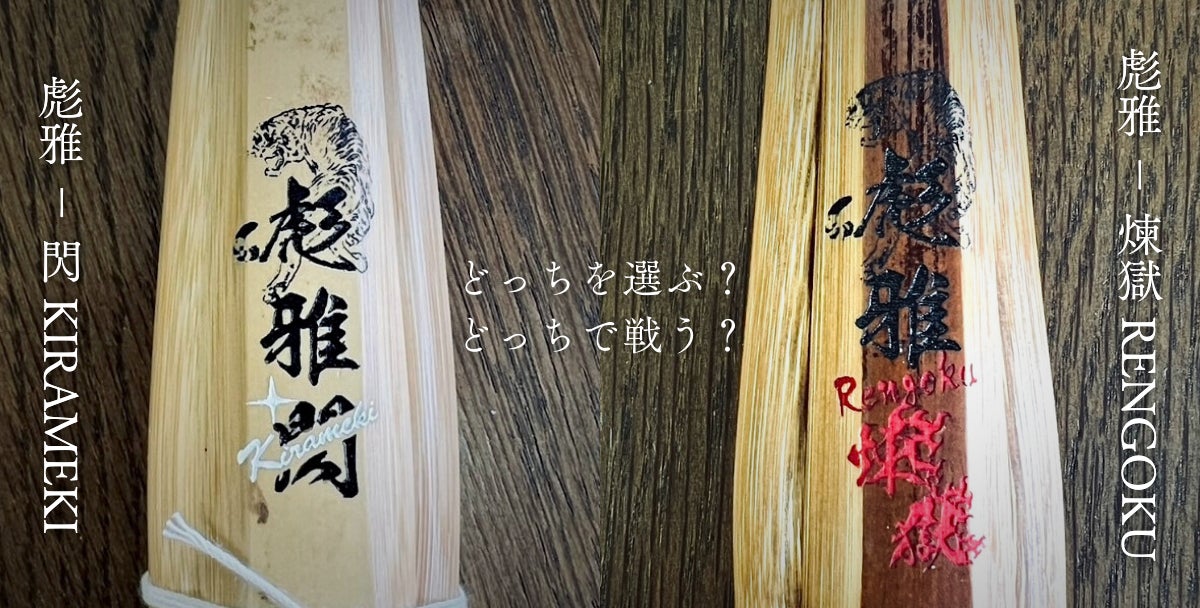 彪雅 – 閃 KIRAMEKI
彪雅
閃
Kirameki
どっちを選ぶ？
どっちで戦う？
彪雅
Rengoku
煉獄
彪雅 – 煉獄 RENGOKU